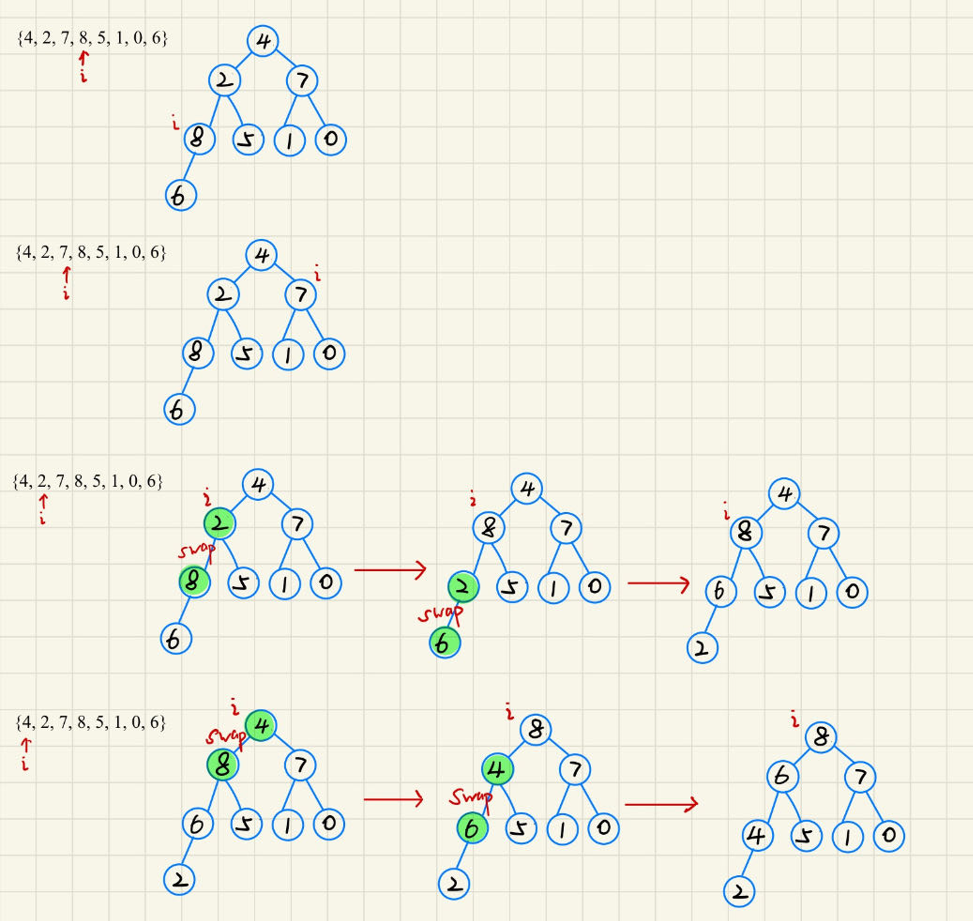 {4, 2, 7, 8, 5, 1, 0, 6}
i
4
2 7
i
8 5 1 0
6
{4, 2, 7, 8, 5, 1, 0, 6}
i
4
i
2 7
8 5 1 0
6
{4, 2, 7, 8, 5, 1, 0, 6}
i
4
i
2 7
swap
8 5 1 0
6
4
i
8 7
2 5 1 0
swap
6
4
i
8 7
6 5 1 0
2
{4, 2, 7, 8, 5, 1, 0, 6}
i
i
4
swap
8 7
6 5 1 0
2
i
8
4 7
swap
6 5 1 0
2
i
8
6 7
4 5 1 0
2